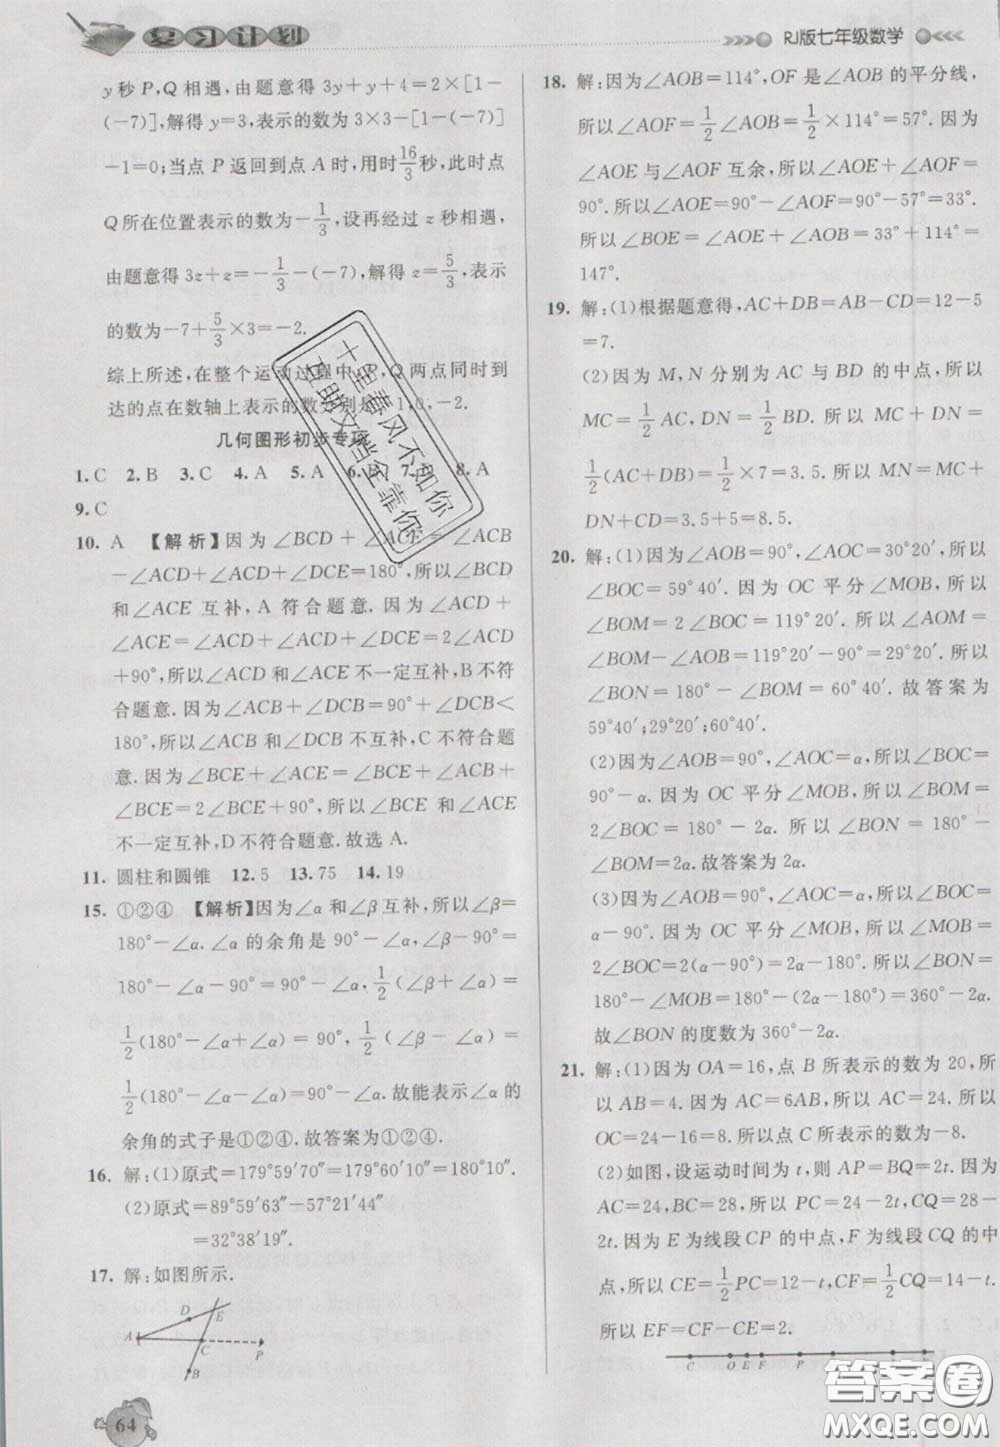 复习计划
RJ版七年级数学
y秒P,Q相遇,由题意得3y+y+4=2×[1-
(-7)],解得y=3,表示的数为3×3-[1-(-7)]
-1=0;当点P返回到点A时,用时16/3秒,此时点
Q所在位置表示的数为-1/3,设再经过z秒相遇,
由题意得3z+z=-1/3-(-7),解得z=5/3,表示
的数为-7+5/3×3=-2.
综上所述,在整个运动过程中,P,Q两点同时到
达的点在数轴上表示的数分别是-1,0,-2.
几何图形初步专项
1.C 2.B 3.C 4.A 5.A 6. 7. 8.A
9.C
10. A 【解析】因为∠BCD+∠ACE=∠ACB
-∠ACD+∠ACD+∠DCE=180°,所以∠BCD
和∠ACE互补,A符合题意.因为∠ACD+
∠ACE=∠ACD+∠ACD+∠DCE=2∠ACD
+90°,所以∠ACD和∠ACE不一定互补,B不符
合题意.因为∠ACB+∠DCB=90°+∠DCB<
180°,所以∠ACB和∠DCB不互补,C不符合题
意.因为∠BCE+∠ACE=∠BCE+∠ACB+
∠BCE=2∠BCE+90°,所以∠BCE和∠ACE
不一定互补,D不符合题意.故选A.
11. 圆柱和圆锥 12.5 13.75 14.19
15. ①②④ 【解析】因为∠α和∠β互补,所以∠β=
180°-∠α.∠α的余角是90°-∠α,∠β-90°=
180°-∠α-90°=90°-∠α,1/2(∠β+∠α)=
1/2(180°-∠α+∠α)=90°,1/2(∠β-∠α)=
1/2(180°-∠α-∠α)=90°-∠α.故能表示∠α的
余角的式子是①②④.故答案为①②④.
16. 解:(1)原式=179°59′70″=179°60′10″=180°10″.
(2)原式=89°59′63″-57°21′44″
=32°38′19″.
17. 解:如图所示.
D
E
A
C
P
B
64
18. 解:因为∠AOB=114°,OF是∠AOB的平分线,
所以∠AOF=1/2∠AOB=1/2×114°=57°.因为
∠AOE与∠AOF互余,所以∠AOE+∠AOF=
90°.所以∠AOE=90°-∠AOF=90°-57°=33°.
所以∠BOE=∠AOE+∠AOB=33°+114°=
147°.
19. 解:(1)根据题意得,AC+DB=AB-CD=12-5
=7.
(2)因为M,N分别为AC与BD的中点,所以
MC=1/2AC,DN=1/2BD.所以MC+DN=
1/2(AC+DB)=1/2×7=3.5.所以MN=MC+
DN+CD=3.5+5=8.5.
20. 解:(1)因为∠AOB=90°,∠AOC=30°20′,所以
∠BOC=59°40′.因为OC平分∠MOB,所以
∠BOM=2∠BOC=119°20′.所以∠AOM=
∠BOM-∠AOB=119°20′-90°=29°20′.所以
∠BON=180°-∠BOM=60°40′.故答案为
59°40′;29°20′;60°40′.
(2)因为∠AOB=90°,∠AOC=α,所以∠BOC=
90°-α.因为OC平分∠MOB,所以∠BOM=
2∠BOC=180°-2α.所以∠BON=180°-
∠BOM=2α.故答案为2α.
(3)因为∠AOB=90°,∠AOC=α,所以∠BOC=
α-90°.因为OC平分∠MOB,所以∠MOB=
2∠BOC=2(α-90°)=2α-180°.所以∠BON=
180°-∠MOB=180°-(2α-180°)=360°-2α.
故∠BON的度数为360°-2α.
21. 解:(1)因为OA=16,点B所表示的数为20,所
以AB=4.因为AC=6AB,所以AC=24.所以
OC=24-16=8.所以点C所表示的数为-8.
(2)如图,设运动时间为t,则AP=BQ=2t.因为
AC=24,BC=28,所以PC=24-2t,CQ=28-
2t.因为E为线段CP的中点,F为线段CQ的中
点,所以CE=1/2PC=12-t,CF=1/2CQ=14-t.
所以EF=CF-CE=2.
C O E F P
十里春风不如你
互助文档全靠你
答案圈
MXQE.COM